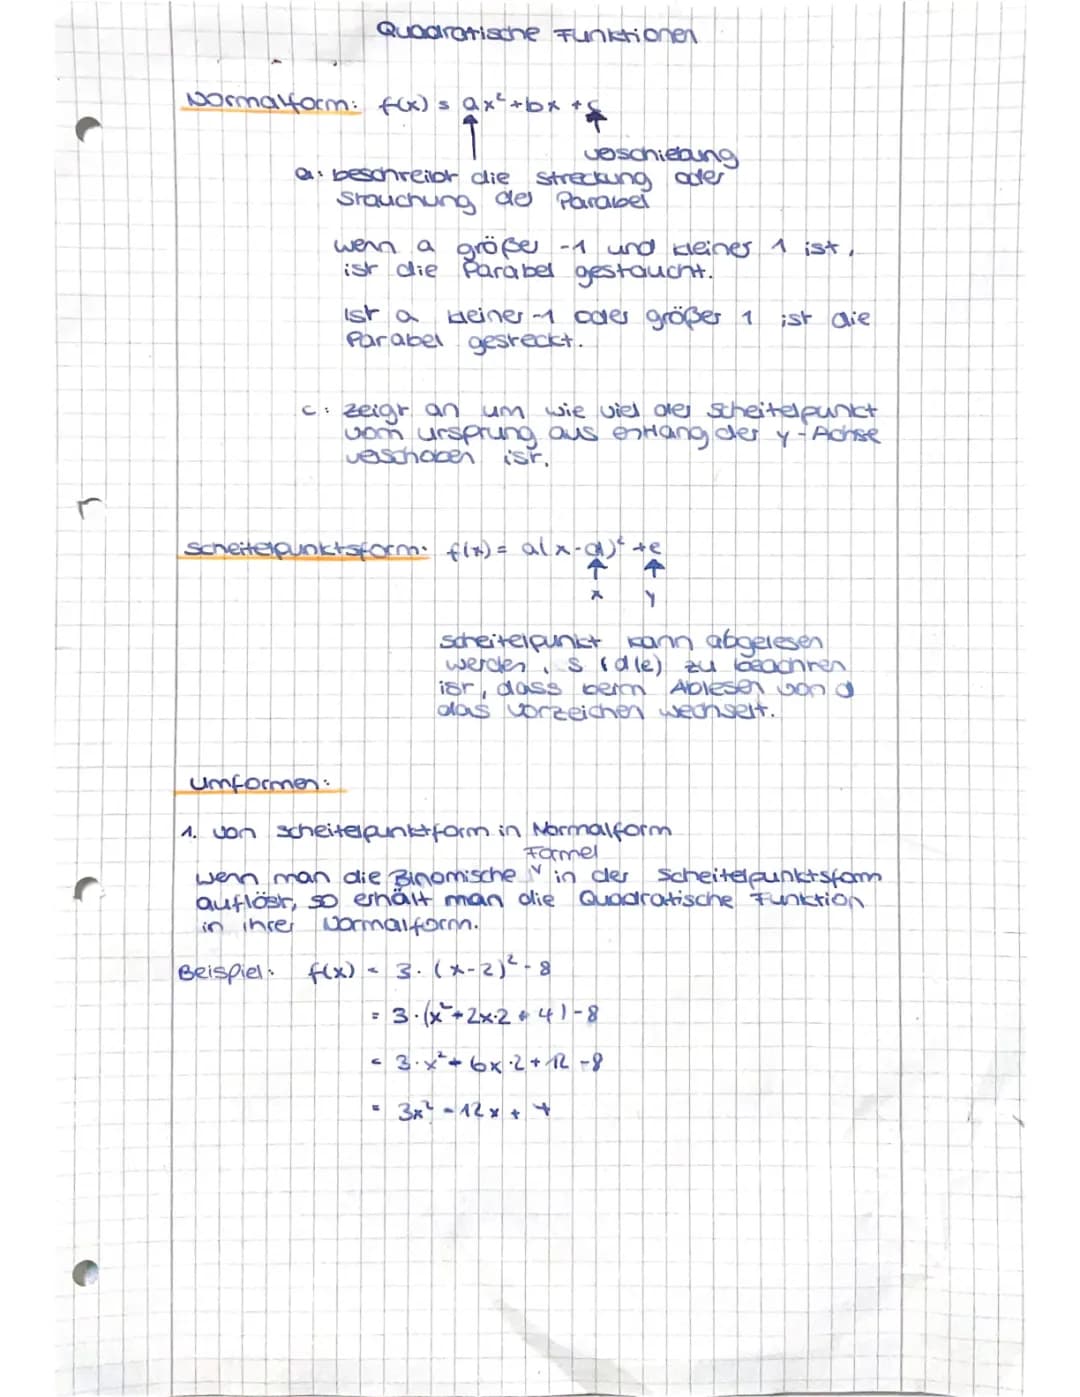 Quadratische Funktionen
Normalform: f(x) = ax² + bx + c
Verschiebung
a: beschreibt die Streckung oder
Stauchung der Parabel
wenn a größer -1 und kleiner 1 ist,
ist die Parabel gestaucht.
Ist a kleiner -1 oder größer 1 ist die
Parabel gestreckt.
c: zeigt an um wie viel der Scheitelpunkt
vom Ursprung aus entlang der y-Achse
verschoben ist.
Scheitelpunktsform: f(x) = a(x-d)² + e
x y
Scheitelpunkt kann abgelesen
werden, S (d|e) zu beachten
ist, dass beim Ablesen von d
das Vorzeichen wechselt.
Umformen:
1. von Scheitelpunktform in Normalform
Formel
wenn man die Binomische v in der Scheitelpunktsform
auflöst, so erhält man die Quadratische Funktion
in ihrer Normalform.
Beispiel: f(x) = 3·(x-2)² - 8
= 3·(x²-2x·2+4)-8
= 3·x²-6x·2+12-8
= 3x² - 12x + 4